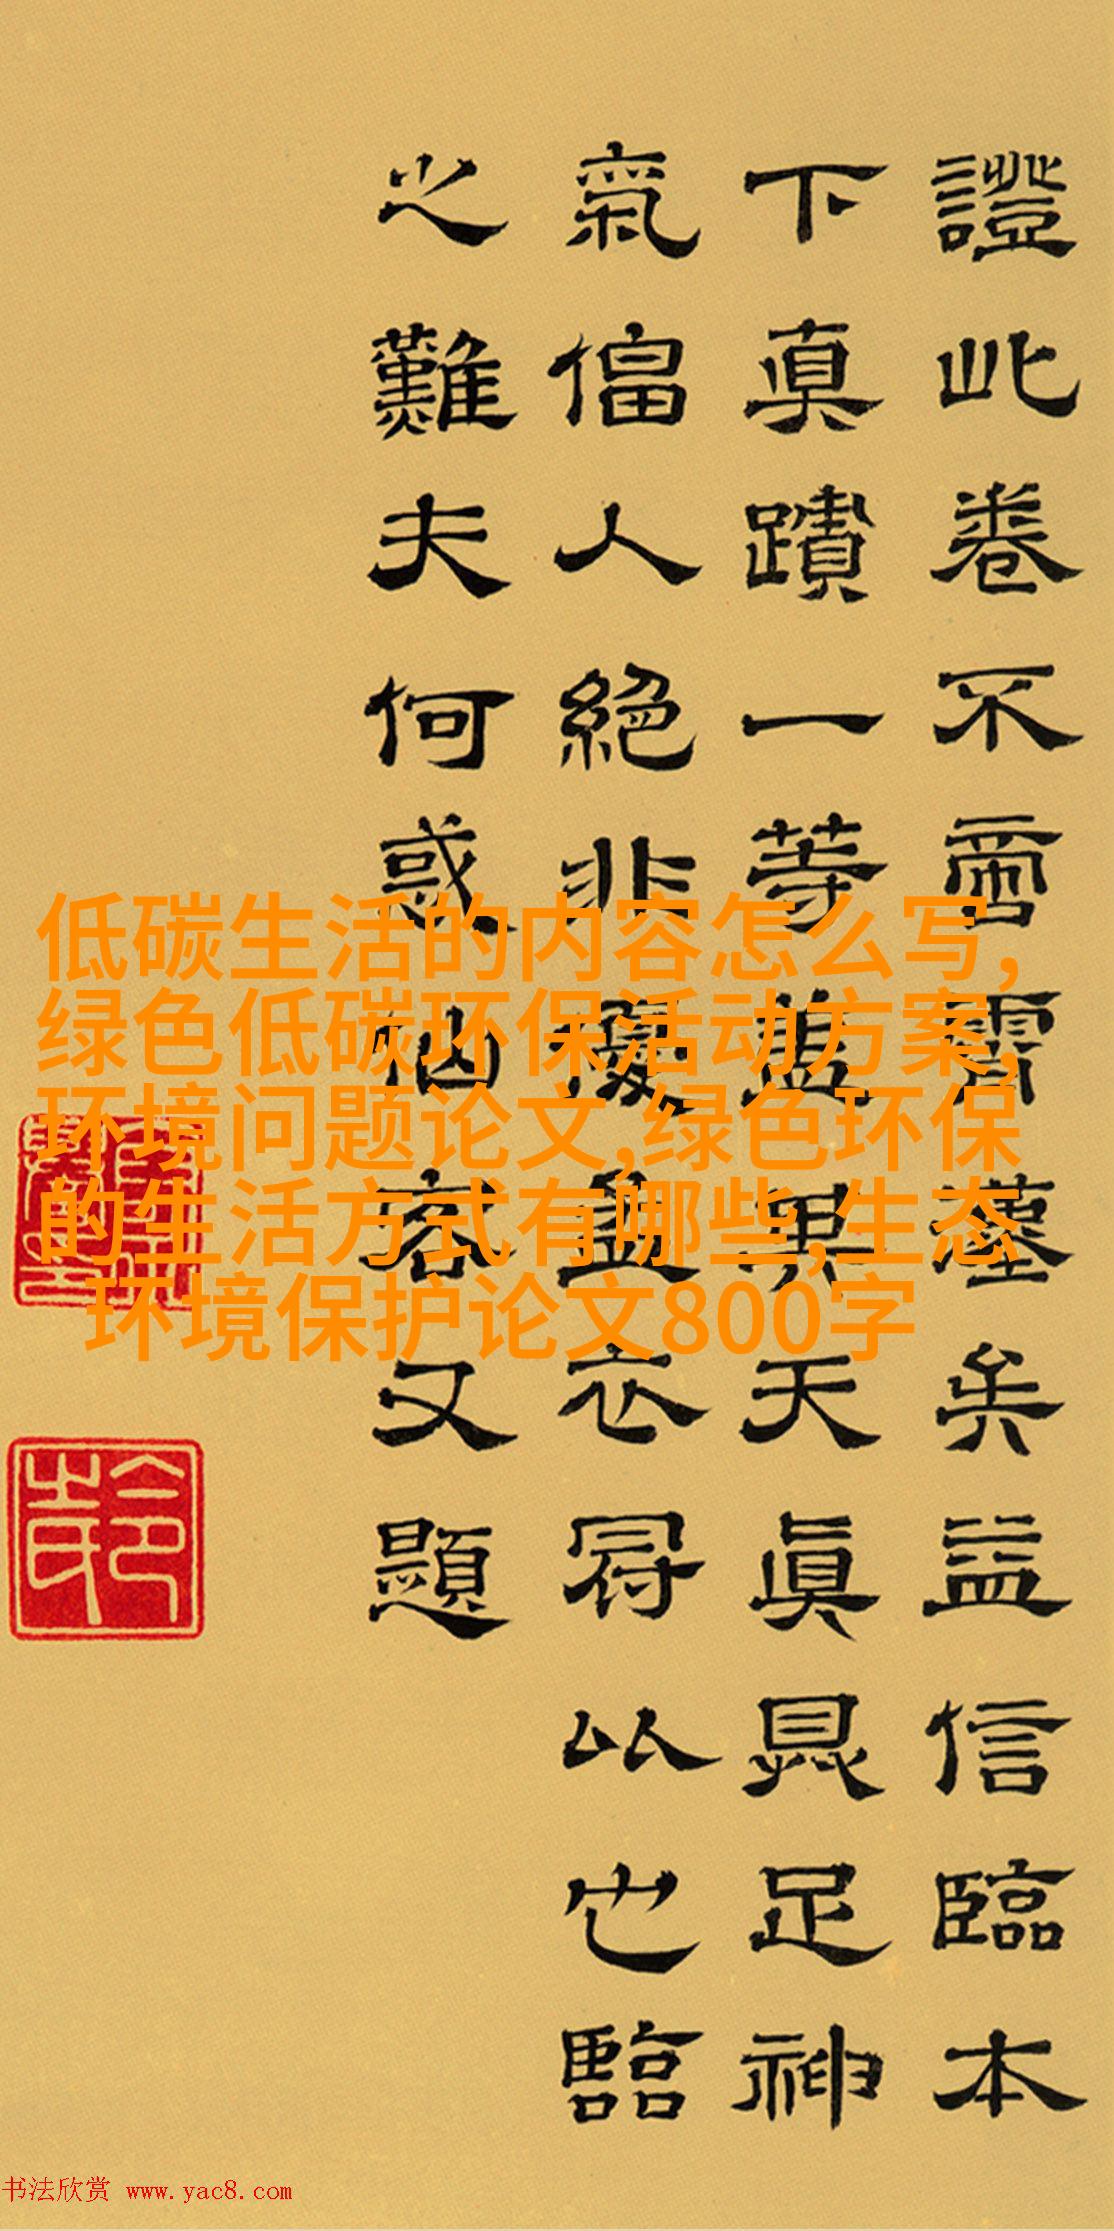 證此卷不啻霄壤矣益信臨本
下真蹟一等盖果天真具足神
氣偪人絕非優孟衣冠以也臨
之難夫何惑恼容又題
低碳生活的内容怎么写,
绿色低碳环保活动方案,
环境问题论文,绿色环保
的生活方式有哪些,生态
环境保护论文800字
书法欣赏 www.yac8.com